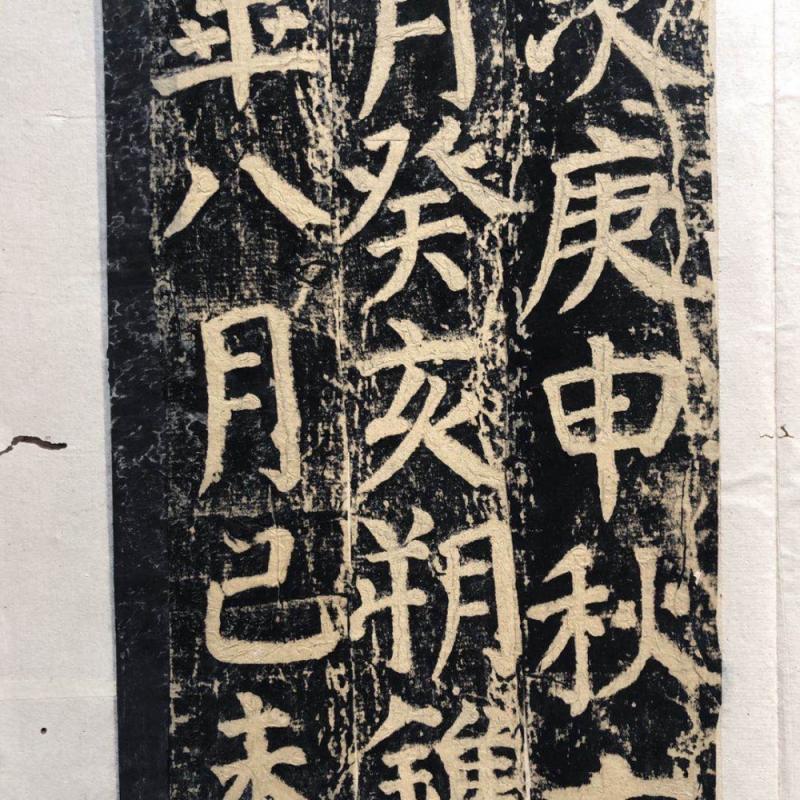 次庚申秋
月癸亥朔
八月己未